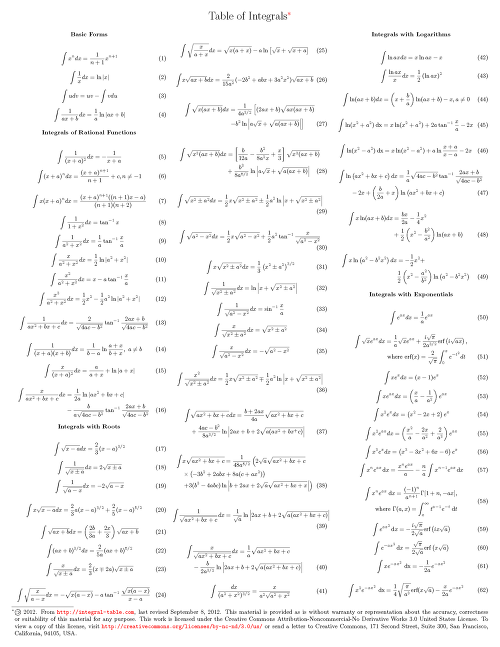 Table of Integrals*
Basic Forms
∫ xⁿdx = 1/(n+1) xⁿ⁺¹ (1)
∫ 1/x dx = ln |x| (2)
∫ udv = uv − ∫ vdu (3)
∫ 1/(ax + b) dx = 1/a ln |ax + b| (4)
Integrals of Rational Functions
∫ 1/(x + a)² dx = − 1/(x + a) (5)
∫ (x + a)ⁿdx = (x + a)ⁿ⁺¹/(n + 1), n ≠ −1 (6)
∫ x(x + a)ⁿdx = (x + a)ⁿ⁺¹((n + 1)x − a)/((n + 1)(n + 2)) (7)
∫ 1/(1 + x²) dx = tan⁻¹ x (8)
∫ 1/(a² + x²) dx = 1/a tan⁻¹ x/a (9)
∫ x/(a² + x²) dx = 1/2 ln |a² + x²| (10)
∫ x²/(a² + x²) dx = x − a tan⁻¹ x/a (11)
∫ x³/(a² + x²) dx = 1/2 x² − 1/2 a² ln |a² + x²| (12)
∫ 1/(ax² + bx + c) dx = 2/√(4ac − b²) tan⁻¹ (2ax + b)/√(4ac − b²) (13)
∫ 1/((x + a)(x + b)) dx = 1/(b − a) ln (a + x)/(b + x), a ≠ b (14)
∫ x/(x + a)² dx = a/(a + x) + ln |a + x| (15)
∫ x/(ax² + bx + c) dx = 1/2a ln |ax² + bx + c|
− b/(a√(4ac − b²)) tan⁻¹ (2ax + b)/√(4ac − b²) (16)
Integrals with Roots
∫ √(x − a) dx = 2/3 (x − a)^(3/2) (17)
∫ 1/√(x ± a) dx = 2√(x ± a) (18)
∫ 1/√(a − x) dx = −2√(a − x) (19)
∫ x√(x − a) dx = 2/3 a(x − a)^(3/2) + 2/5 (x − a)^(5/2) (20)
∫ √(ax + b) dx = (2b/3a + 2x/3) √(ax + b) (21)
∫ (ax + b)^(3/2) dx = 2/5a (ax + b)^(5/2) (22)
∫ x/√(x ± a) dx = 2/3 (x ∓ 2a)√(x ± a) (23)
∫ √(x/(a − x)) dx = −√(x(a − x)) − a tan⁻¹ √(x(a − x))/(x − a) (24)
∫ √(x/(a + x)) dx = √(x(a + x)) − a ln [√x + √(x + a)] (25)
∫ x√(ax + b) dx = 2/15a² (−2b² + abx + 3a²x²)√(ax + b) (26)
∫ √(x(ax + b)) dx = 1/4a^(3/2) [(2ax + b)√(ax(ax + b))
−b² ln |a√x + √(a(ax + b))|] (27)
∫ √(x³(ax + b)) dx = [b/12a − b²/8a²x + x/3] √(x³(ax + b))
+ b³/8a^(5/2) ln |a√x + √(a(ax + b))| (28)
∫ √(x² ± a²) dx = 1/2 x√(x² ± a²) ± 1/2 a² ln |x + √(x² ± a²)|
(29)
∫ √(a² − x²) dx = 1/2 x√(a² − x²) + 1/2 a² tan⁻¹ x/√(a² − x²)
(30)
∫ x√(x² ± a²) dx = 1/3 (x² ± a²)^(3/2) (31)
∫ 1/√(x² ± a²) dx = ln |x + √(x² ± a²)| (32)
∫ 1/√(a² − x²) dx = sin⁻¹ x/a (33)
∫ x/√(x² ± a²) dx = √(x² ± a²) (34)
∫ x/√(a² − x²) dx = −√(a² − x²) (35)
∫ x²/√(x² ± a²) dx = 1/2 x√(x² ± a²) ∓ 1/2 a² ln |x + √(x² ± a²)|
(36)
∫ √(ax² + bx + c) dx = (b + 2ax)/4a √(ax² + bx + c)
+ (4ac − b²)/8a^(3/2) ln |2ax + b + 2√(a(ax² + bx + c))| (37)
∫ x√(ax² + bx + c) = 1/48a^(5/2) (2√a√(ax² + bx + c)
× (−3b² + 2abx + 8a(c + ax²))
+3(b³ − 4abc) ln |b + 2ax + 2√a√(ax² + bx + c)|) (38)
∫ 1/√(ax² + bx + c) dx = 1/√a ln |2ax + b + 2√(a(ax² + bx + c))|
(39)
∫ x/√(ax² + bx + c) dx = 1/a √(ax² + bx + c)
− b/2a^(3/2) ln |2ax + b + 2√(a(ax² + bx + c))| (40)
∫ dx/(a² + x²)^(3/2) = x/(a²√(a² + x²)) (41)
Integrals with Logarithms
∫ ln ax dx = x ln ax − x (42)
∫ ln ax/x dx = 1/2 (ln ax)² (43)
∫ ln(ax + b) dx = (x + b/a) ln(ax + b) − x, a ≠ 0 (44)
∫ ln(x² + a²) dx = x ln(x² + a²) + 2a tan⁻¹ x/a − 2x (45)
∫ ln(x² − a²) dx = x ln(x² − a²) + a ln (x + a)/(x − a) − 2x (46)
∫ ln (ax² + bx + c) dx = 1/a √(4ac − b²) tan⁻¹ (2ax + b)/√(4ac − b²)
− 2x + (b/2a + x) ln (ax² + bx + c) (47)
∫ x ln(ax + b) dx = bx/2a − 1/4 x²
+ 1/2 (x² − b²/a²) ln(ax + b) (48)
∫ x ln (a² − b²x²) dx = −1/2 x² +
1/2 (x² − a²/b²) ln (a² − b²x²) (49)
Integrals with Exponentials
∫ eᵃˣ dx = 1/a eᵃˣ (50)
∫ √x eᵃˣ dx = 1/a √x eᵃˣ + i√π/2a^(3/2) erf (i√(ax)),
where erf(x) = 2/√π ∫₀ˣ e^(−t²) dt (51)
∫ xeˣ dx = (x − 1)eˣ (52)
∫ xeᵃˣ dx = (x/a − 1/a²) eᵃˣ (53)
∫ x²eˣ dx = (x² − 2x + 2) eˣ (54)
∫ x²eᵃˣ dx = (x²/a − 2x/a² + 2/a³) eᵃˣ (55)
∫ x³eˣ dx = (x³ − 3x² + 6x − 6) eˣ (56)
∫ xⁿeᵃˣ dx = xⁿeᵃˣ/a − n/a ∫ xⁿ⁻¹eᵃˣ dx (57)
∫ xⁿeᵃˣ dx = (−1)ⁿ/aⁿ⁺¹ Γ[1 + n, −ax],
where Γ(a, x) = ∫ₓ^∞ tᵃ⁻¹e⁻ᵗ dt (58)
∫ e^(ax²) dx = −i√π/2√a erf (ix√a) (59)
∫ e^(−ax²) dx = √π/2√a erf (x√a) (60)
∫ xe^(−ax²) dx = −1/2a e^(−ax²) (61)
∫ x²e^(−ax²) dx = 1/4 √(π/a³) erf(x√a) − x/2a e^(−ax²) (62)
*© 2012. From http://integral-table.com, last revised September 8, 2012. This material is provided as is without warranty or representation about the accuracy, correctness
or suitability of this material for any purpose. This work is licensed under the Creative Commons Attribution-Noncommercial-No Derivative Works 3.0 United States License. To
view a copy of this license, visit http://creativecommons.org/licenses/by-nc-nd/3.0/us/ or send a letter to Creative Commons, 171 Second Street, Suite 300, San Francisco,
California, 94105, USA.